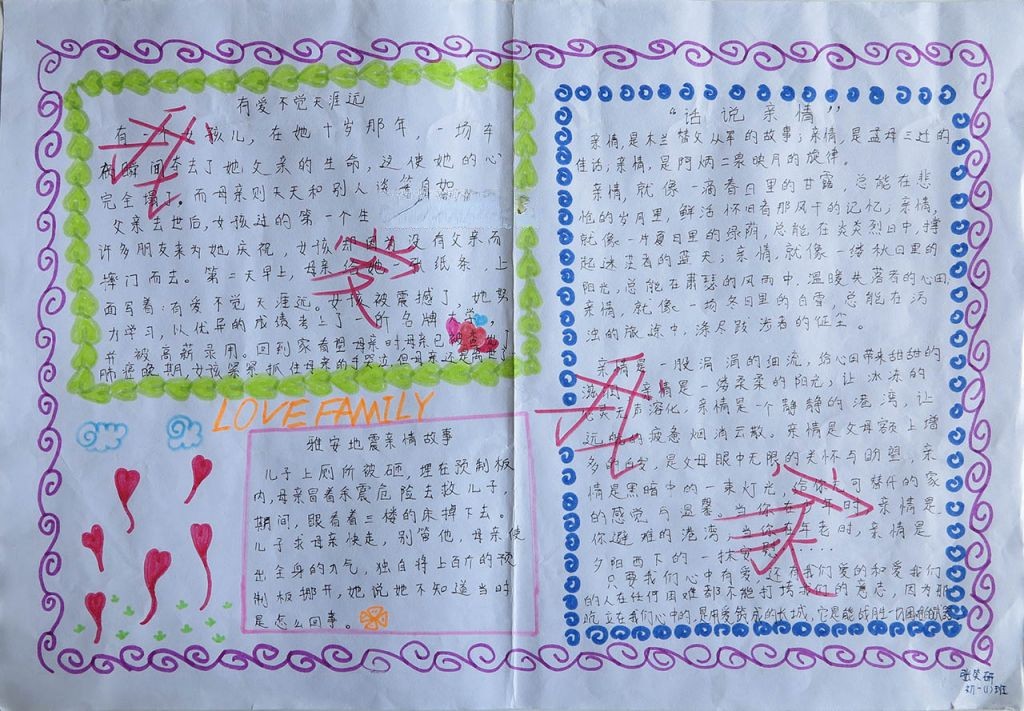 有爱不觉天涯远
有一个女孩儿，在她十岁那年，一场车
祸瞬间夺去了她父亲的生命，这使她的心
完全塌了。而母亲则天天和别人谈笑自如
父亲去世后，女孩过的第一个生
许多朋友来为她庆祝，女孩却因为没有父亲而
摔门而去。第二天早上，母亲给她一张纸条，上
面写着：有爱不觉天涯远。女孩被震撼了，她努
力学习，以优异的成绩考上了一所名牌大学，
并被高薪录用。回到家看望母亲时母亲已被查出了
肺癌晚期，女孩紧紧抓住母亲的手哭泣，但母亲还是离世了
LOVE FAMILY
雅安地震亲情故事
儿子上厕所被砸，埋在预制板
内，母亲冒着余震危险去救儿子，
期间，眼看着三楼的床掉下去。
儿子求母亲快走，别管他，母亲使
出全身的力气，独自将上百斤的预
制板挪开，她说她不知道当时
是怎么回事。
“话说亲情”
亲情，是木兰替父从军的故事；亲情，是孟母三迁的
佳话；亲情，是阿炳二泉映月的旋律。
亲情，就像一滴春日里的甘露，总能在悲
怆的岁月里，鲜活怀旧者那风干的记忆；亲情，
就像一片夏日里的绿荫，总能在炎炎烈日中，撑
起迷茫者的蓝天；亲情，就像一缕秋日里的
阳光，总能在肃瑟的风雨中，温暖失落者的心田
亲情，就像一场冬日里的白雪，总能在污
浊的旅途中，涤尽跋涉者的征尘。
亲情是一股涓涓的细流，给心田带来甜甜的
滋润，亲情是一缕柔柔的阳光，让冰冻的
心灵无声溶化，亲情是一个静静的港湾，让
远航的疲惫烟消云散。亲情是父母额上增
多的白发，是父母眼中无限的关怀与期盼，亲
情是黑暗中的一束灯光，给你无可替代的家
的感觉与温馨。当你在少年时，亲情是
你避难的港湾，当你在年老时，亲情是
夕阳西下的一抹安慰……
只要我们心中有爱，还有我们爱的和爱我们
的人在任何困难都不能打垮我们的意志，因为那
屹立在我们心中的，是用爱筑成的长城，它是能战胜一切困难的
张笑研
初一(1)班
寻
袭
寻
袭